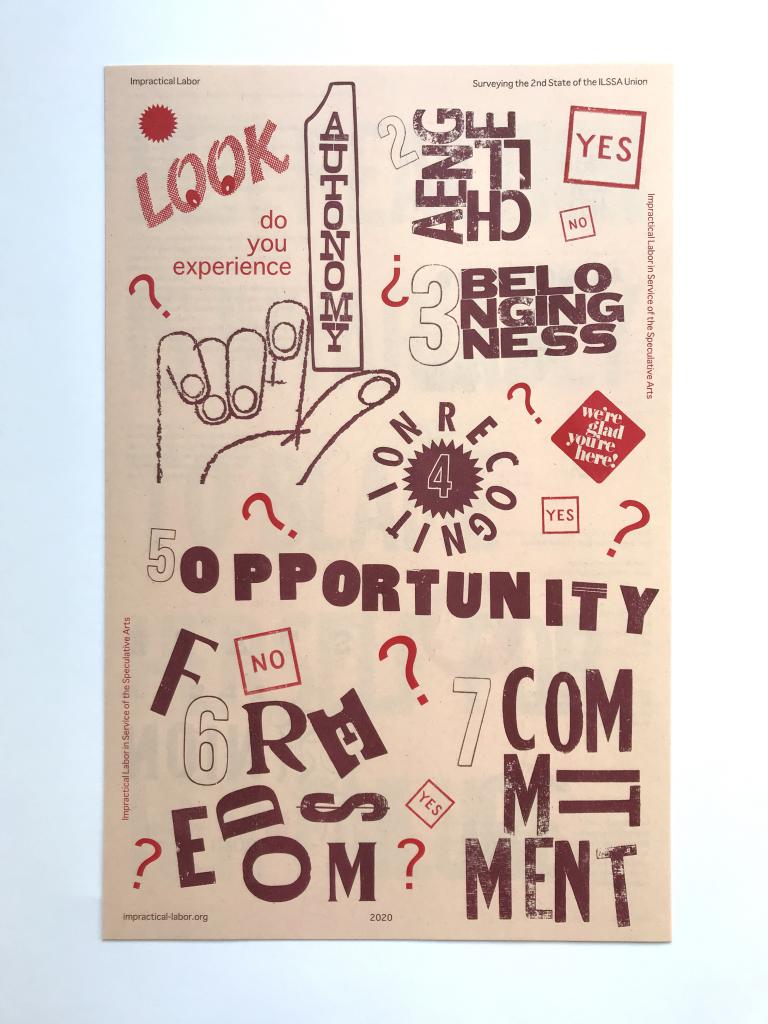 Impractical Labor
Surveying the 2nd State of the ILSSA Union
LOOK
do
you
experience
?
1
AUTONOMY
2
CHALLENGE
YES
NO
Impractical Labor in Service of the Speculative Arts
?
3
BELO
NGING
NESS
?
we're
glad
you're
here!
4
RECOGNITION
YES
?
?
5
OPPORTUNITY
NO
?
6
FREEDOMS
7
COM
MIT
MENT
YES
?
?
Impractical Labor in Service of the Speculative Arts
impractical-labor.org
2020